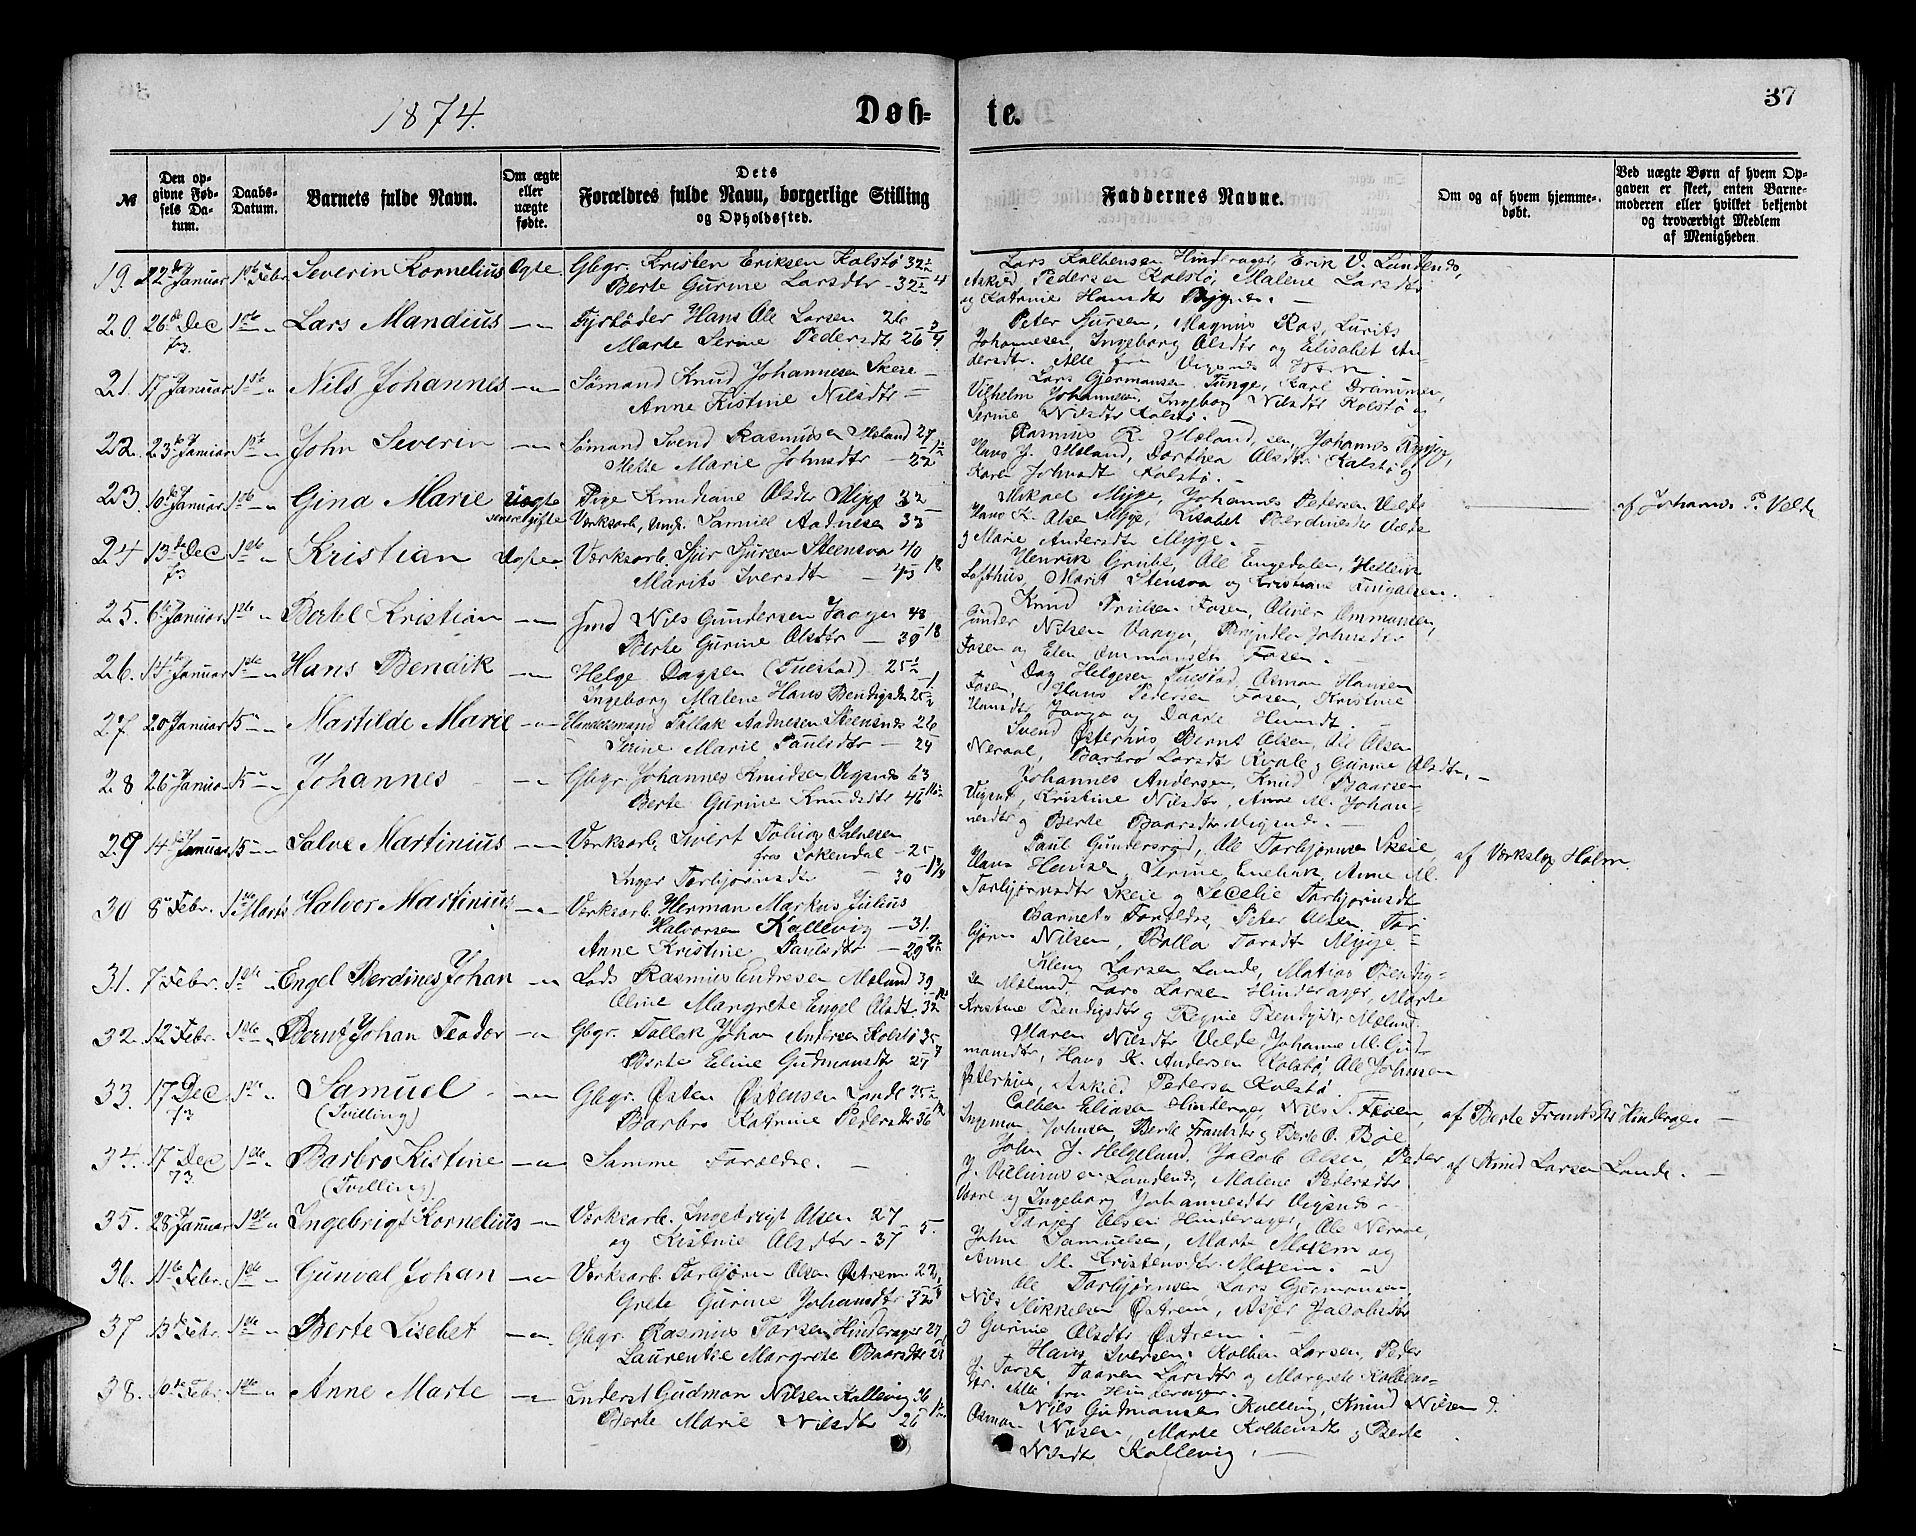 1874.
Døb-
te.
37
№
Den opgivne Fødsels Datum.
Daabs-Datum.
Barnets fulde Navn.
Om ægte eller uægte fødte.
Dets Forældres fulde Navn, borgerlige Stilling og Opholdssted.
Faddernes Navne.
Om og af hvem hjemmedøbt.
Ved uægte Børn af hvem Opgaven er skeet, enten Barnemoderen eller hvilket bekjendt og troværdigt Medlem af Menigheden.
19. 22de Januar 1ste Febr Severin Kornelius Ægte Gbgr. Kristen Eriksen Kolstø 32
Berte Gurine Larsdtr - 32
Lars Kolbensen Hinderager, Erik V. Lundend,
Askild Pedersen Kolstø, Malene Larsdtr
og Katrine Hansdtr
20. 26de Dec 73. 1ste " Lars Mandius — Fyrbøder Hans Ole Larsen 26
Marte Serine Pedersdtr 26
Peter Sjursen, Magnus Ros, Lurits
Johannesen, Ingeborg Olsdtr og Elisabet An
dersdtr. Alle fra Vigsnes
21. 17 Januar 1ste " Nils Johannes — Sømand Knud Johannesen Skeie -
Anne Kistine Nilsdtr -
Lars Gjermansen Tunge, Karl Drammen,
Vilhelm Johannesen, Ingebog Nilsdtr Kolstø
Serine Nilsdtr Kolstø.
22. 23de Januar 1ste " John Severin — Sømand Svend Rasmussen Mæland 27
Mette Marie Johnsdtr - 22
Rasmus R. Mæland, sen, Johannes
Hans J. Mæland, Dorthea Olsdtr Kolstø og
Karen Johnsdt Kolstø.
23. 10de Januar 1ste " Gina Marie Uægte Pige Knudiane Olsdtr Myge 32
Verksarb, Ungk. Samuel Aadnesen 33
Mikael Myge, Johannes Pedersen Velde
Hans K. Olsen Myge, Lisabet Velde
og Marie Andersdtr Myge.
af Johans P. Velde
24 13de Dec 73 1ste " Kristian Verksarb. Sjur Sjursen Steensva 40
Marits Iversdtr - 43 18
Henrik Grube, Ole Engedalen, Hellick
Lofthus, Marit Stensva og Kristiane
25. 6te Januar 1ste " Bertel Kristian — Smed Nils Gundersen Vaage 48
Berte Gurine Olsdtr - 39 18
Knud Trulsen Fosen, Oliver Ommansen,
Gunder Nilsen Vaage, Johnsdtr
Fosen og Elen Ommansdtr Fosen.
26. 14de Januar 1ste " Hans Bendik — Helge Dagsen (Tuestad) 25
Ingeborg Malene Hans Bendigsdtr 25
Dag Helgesen Tuestad, Osmon Hansen
Fosen, Hans Pedersen Fosen, Kristine
Hansdtr Vaage og Daarte
27. 20 Januar 15 " Martilde Marie — Handelsmand Tallak Aadnesen Steensnes 26
Serine Marie Paulsdtr - 24
Svend Østerhus Bernt Olsen, Ole Olsen
Neraal, Barbro Larsdtr Kvale og Gurine Olsdtr.
28 26 Januar 15 " Johannes — Gbgr. Johannes Knudsen Vigsnes 63
Berte Gurine Knudsdtr 46
Johannes Andersen, Knud Baarsen
Vigsn, Kristine Nilsdtr, Anne M. Johan-
nesdtr og Berte Baarsdtr Vigsnes.
29 14de Januar 15 " Salve Martinius — Verksarb. Sivert Tobias Salvesen
fra Sokendal - 25
Inger Torbjørnsdtr - 30
Paul Gundersrød, Ole Torbjørnsen Skeie,
Hans Hansen, Serine Anne M.
Torbjørnsdtr Skeie og Secelie Torbjørnsdt
af Verkslæg Holm.
30 8 Febr. 1ste Marts Halvor Martinius — Verksarb. Herman Markus Julius
Halvorsen Kallevig - 31.
Anne Kristine Paulsdtr - 29
Barnets Forældre, Peter Olsen, Tor
bjørn Nilsen, Bolla Torsdtr Myge
31. 7 Febr. 1ste " Engel Berdines Johan — Lods Rasmus Endresen Mæland 39
Oline Margrete Engel Olsdt. 32
Kleng Larsen Lande, Matias Bendig-
sen Mæland, Lars Larsen Hinderager, Marte
Kristine Bendigsdtr og Regine Bendigsdtr Mæland
32. 12 Febr. 1ste " Bernt Johan Teodor — Gbgr. Tallak Johan Andersen Kolstø 35
Berte Eline Gudmansdtr 27
Maren Nilsdtr Velde, Johanne M. Gud-
mansdtr, Hans K. Andersen Kolstø, Ole Johnsen
Østerhus, Askild Pedersen Kolstø
33. 17 Dec 73 1ste " Samuel — Gbgr. Østen Østensen Lande 35
(Tvilling)
Barbro Katrine Pedersdtr 36
Colben Eliasen Hinderager, Nils T. Fosen,
Ingeman Johnsen, Berte Frantsdtr og Berte O. Bøe
af Berte Frantsdtr Hinderager —
34. 17 Dec 73. 1ste " Barbro Kistine — Samme Forældre. —
(Tvilling)
John J. Helgeland, Jacob Olsen, Peder
J. Villumsen Landend, Malene Pedersdtr.
Vaare og Ingeborg Johannesdtr Vigsnes
af Knud Larsen Lande. —
35. 28 Januar 1ste " Ingebrigt Kornelius — Verksarb. Ingebrigt Olsen 27
og Kistine Olsdtr - 37 5.
Torjer Olsen Hinderager, Ole Neraae,
John Samuelsen, Marte Moxem og
Anne M. Kristensdtr Moxem.
36. 11te Febr. 1ste " Gunval Johan — Verksarb. Torbjørn Olsen Østrem 22
Grete Gurine Johansdtr 32
Ole Torbjørnsen, Lars Gjermansen,
Nils Mikkelsen Østrem, Asjer Jacobsdtr
og Gurine Olsdtr Østrem.
37 13de Febr. 1ste " Berte Lisebet — Gbgr. Rasmus Torsen Hinderager 27
Laurentse Margrete Baarsdtr 23
Hans Iversen, Kolben Larsen, Peder
Torsen, Taaren Larsdtr og Margrete Kolbens-
dtr. Alle fra Hinderager.
38. 10de Febr. 1ste " Anne Marte — Inderst Gudman Nilsen Kallevig 36
Berte Marie Nilsdtr 26
Nils Gudmansen Kallevig, Knud Nilsen
Osman Nilsen, Marte Kolbensdtr og Berte
Nilsdtr Kallevig.